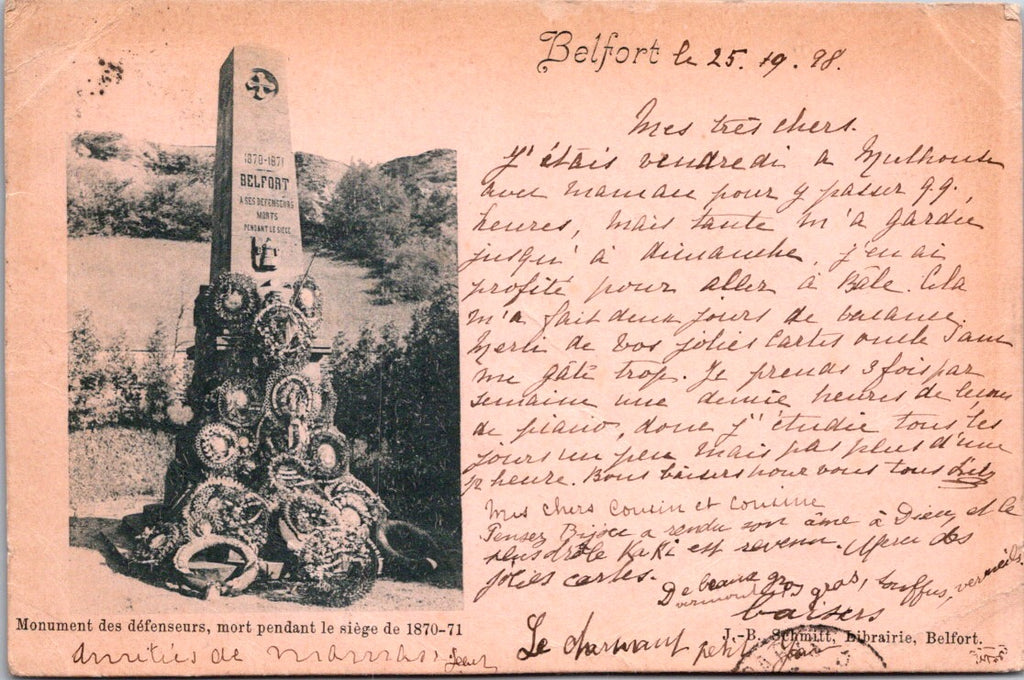 Belfort le 25. 19. 98.
Mes très chers.
J'étais vendredi a Mulhouse
avec maman pour y passer qq.
heures, mais tante m'a gardée
jusqu'à dimanche, j'en ai
profité pour aller à Bâle. Cela
m'a fait deux jours de vacance.
Merci de vos jolies cartes oncle Sam
me gâte trop. Je prends 3 fois par
semaine une demie heures de leçons
de piano, donc j'étudie tous les
jours un peu mais pas plus d'une
heure. Bons baisers pour vous tous
Mes chers Cousin et Cousine
Pensez Bijou a rendu son âme à Dieu, et le
plus drôle KiKi est revenu. Merci des
jolies cartes.
De beaux gros gras, touffus, vermeils,
baisers
Le charmant petit
1870-1871
BELFORT
A SES DEFENSEURS
MORTS
PENDANT LE SIÈGE
Monument des défenseurs, mort pendant le siège de 1870-71
J.-B. Schmitt, Librairie, Belfort.
Amitiés de maman